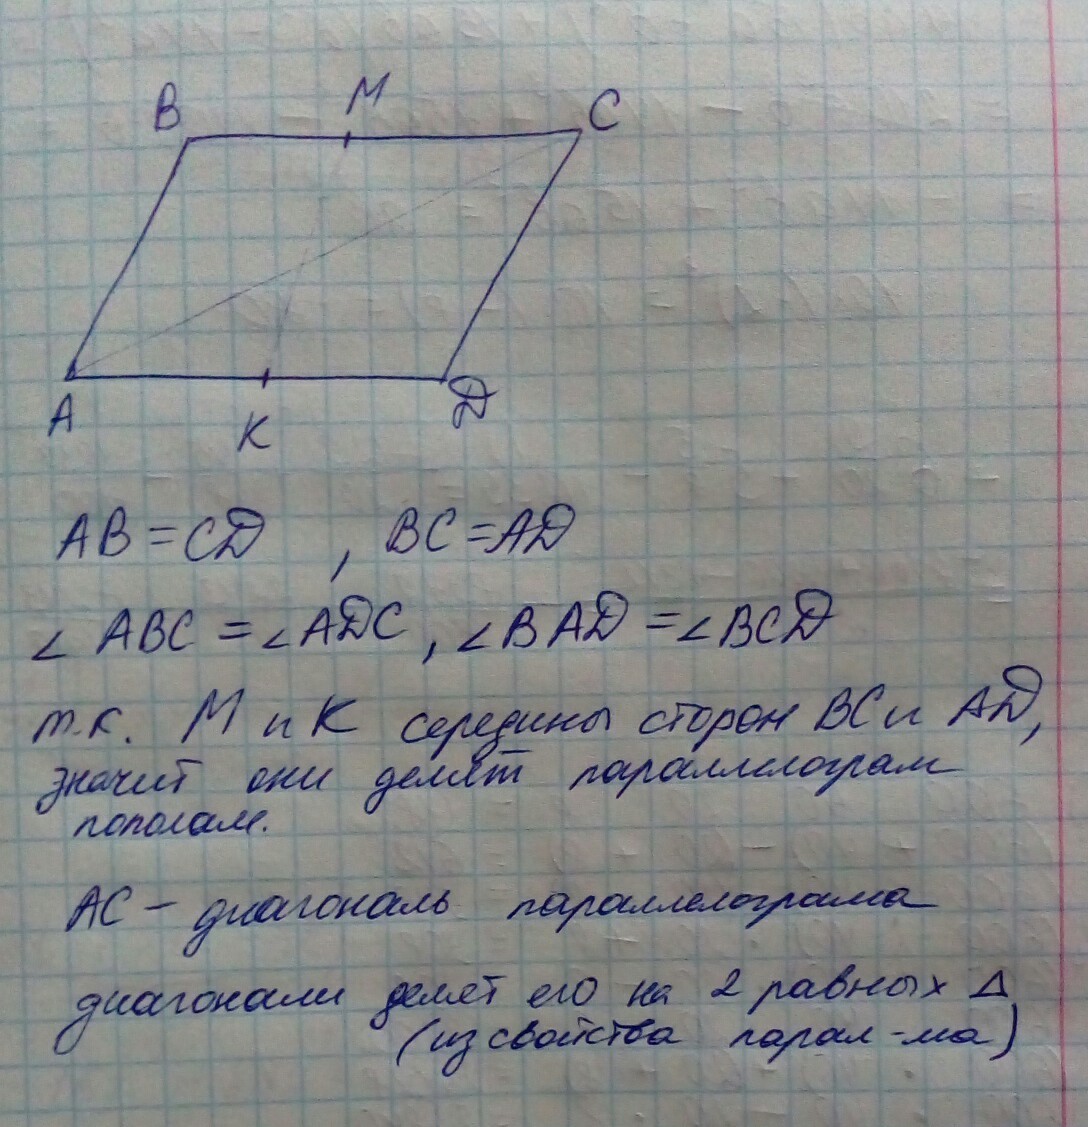 B M C
A K D
AB = CD , BC = AD
∠ ABC = ∠ ADC , ∠ BAD = ∠ BCD
т.к. М и К середины сторон BC и AD,
значит они делят параллелограм
пополам.
AC – диагональ параллелограма
диагонали делят его на 2 равных Δ
(из свойства парал-ма)